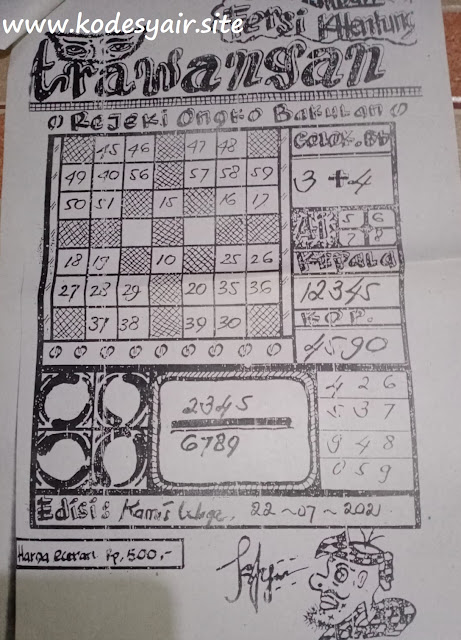 www.kodesyair.site
Versi Klentung
trawangan
Rejeki Ongko Bakulan
45 46 47 48
49 40 56 57 58 59
50 51 15 16 17
18 19 10 25 26
27 28 29 20 35 36
37 38 39 30
COLOK. BB
3 + 4
AI 5 6
7 8
KEPALA
12345
KOP.
4590
2345
6789
4 2 6
5 3 7
9 4 8
0 5 9
Edisi: Kamis Wage, 22-07-2021
Harga eceran Rp, 500,-